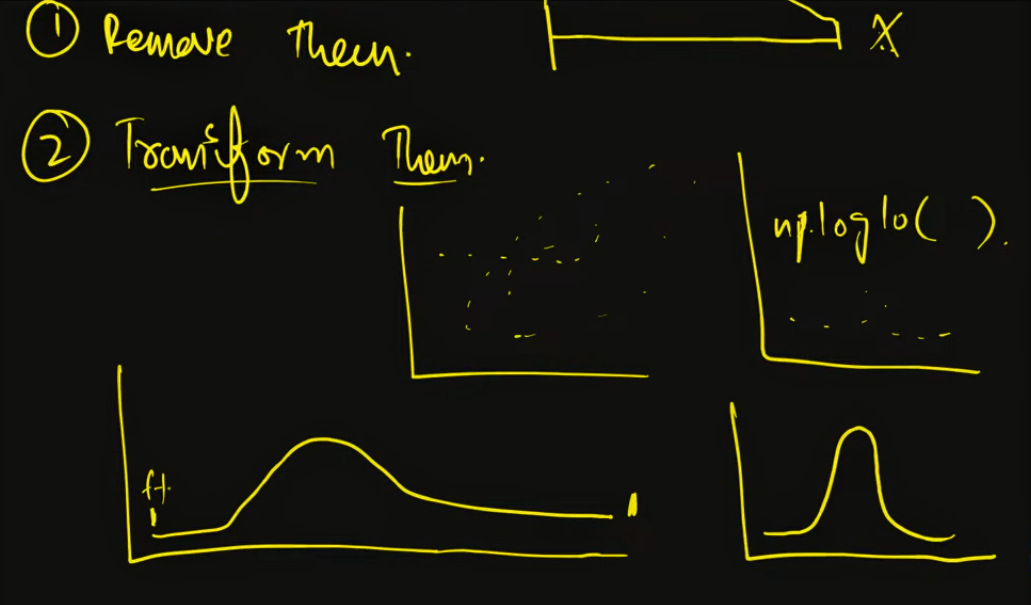 ① Remove Them.
X
② Transform Them.
np.log10( ).
ft.